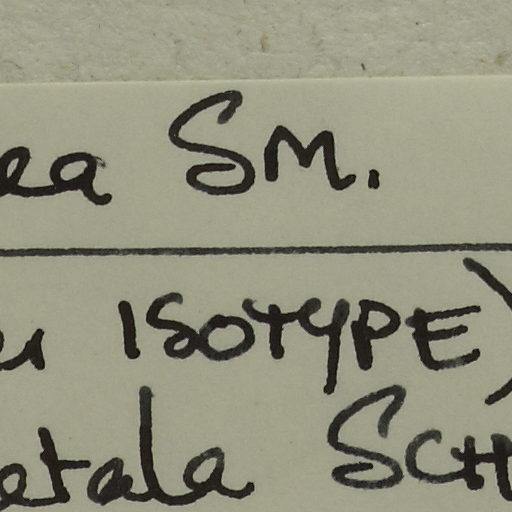 ea SM.
ISOTYPE)
etala SCH